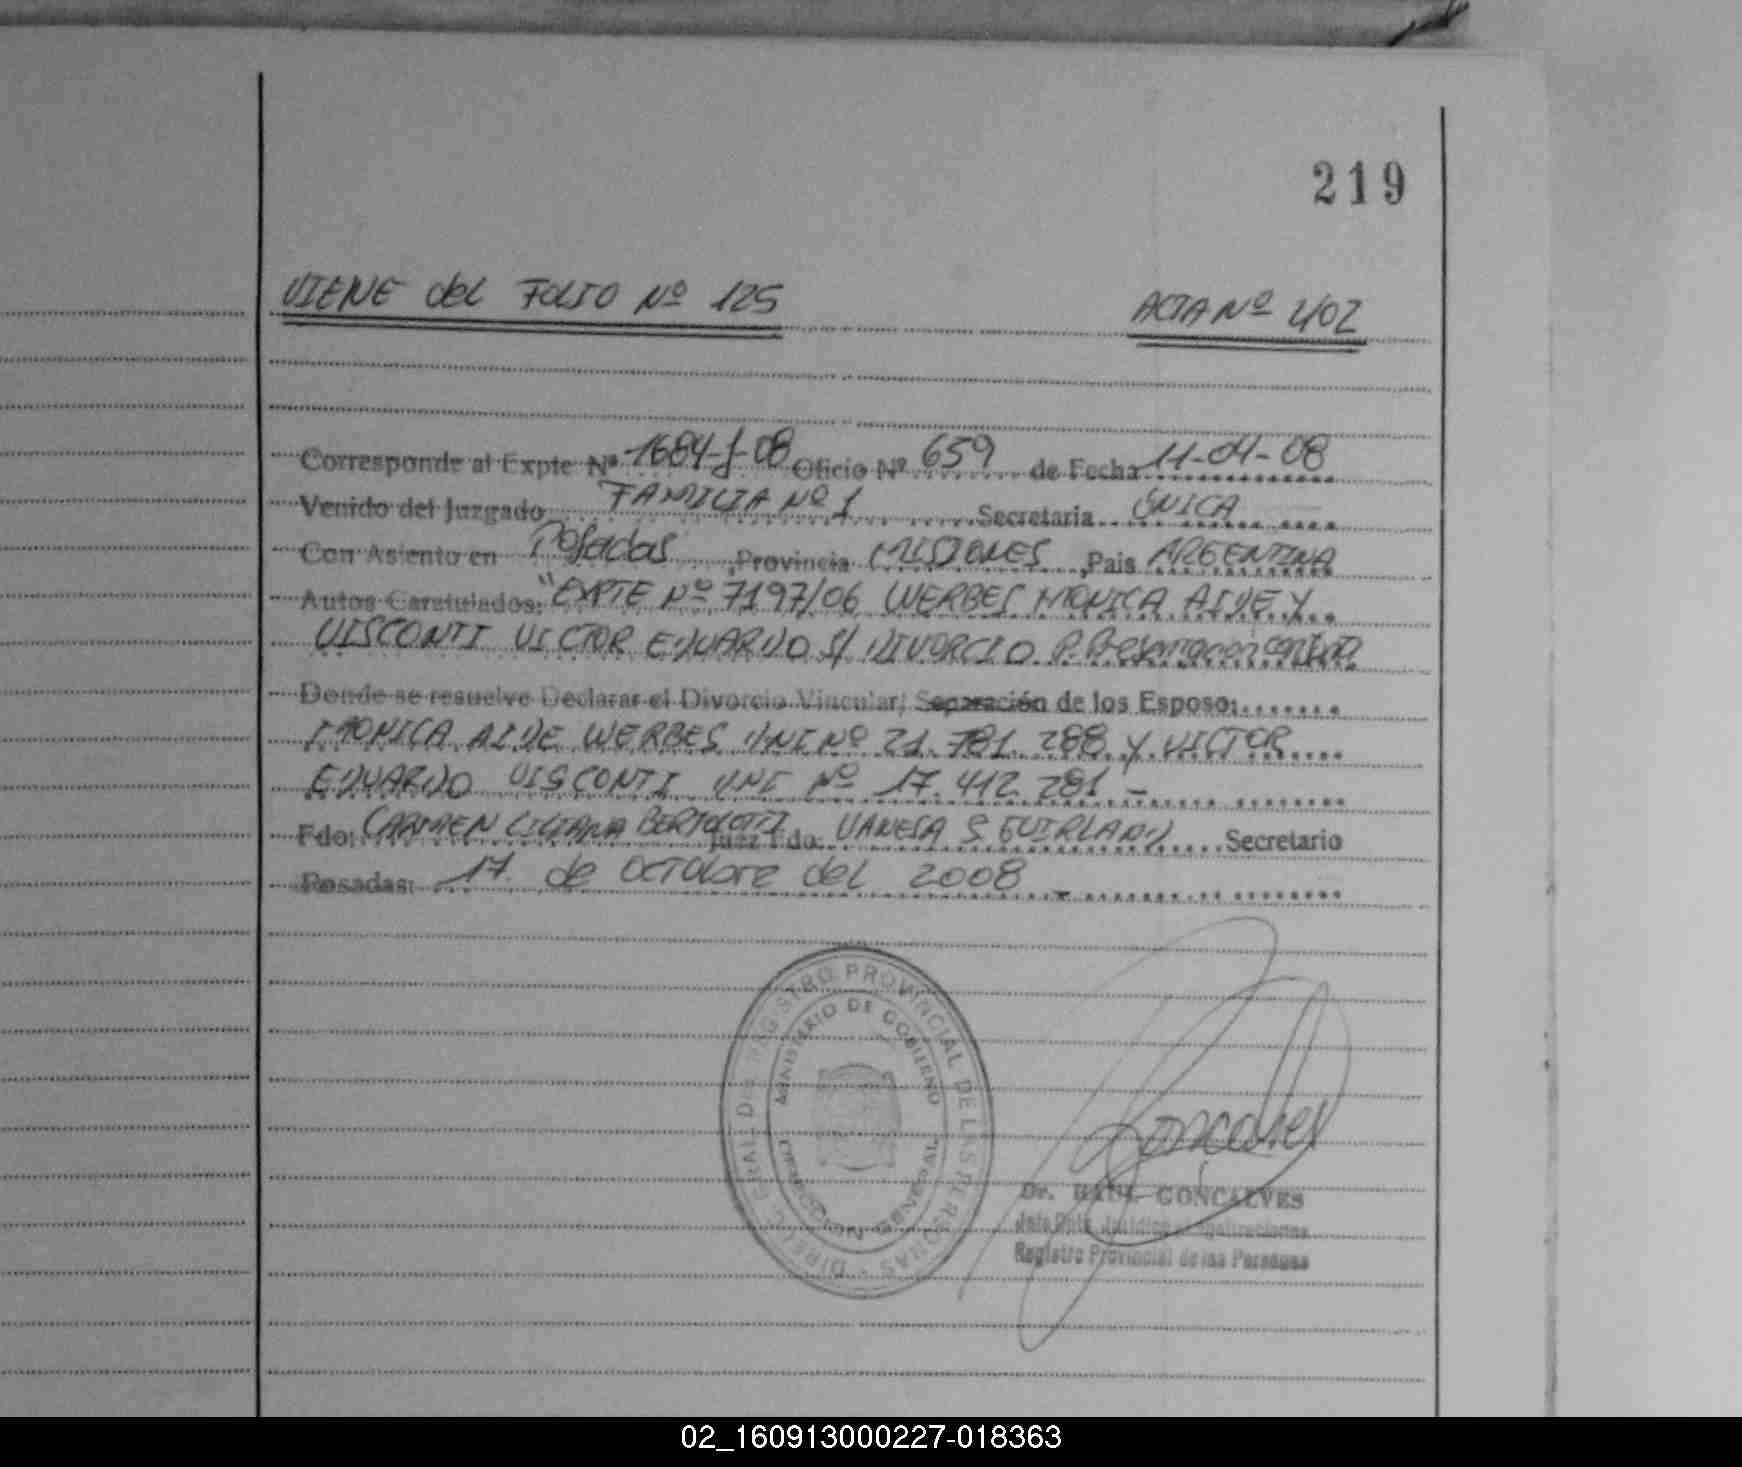 219
VIENE del FOLIO Nº 125 ACTA Nº 402
Corresponde al Expte Nº 1684-J-08 Oficio Nº 659 de Fecha 11-04-08
Venido del Juzgado FAMILIA Nº 1 Secretaria ÚNICA
Con Asiento en Posadas, Provincia MISIONES, Pais ARGENTINA
Autos Caratulados: "EXPTE Nº 7197/06 WERBES MONICA AIDE Y
VISCONTI VICTOR EDUARDO S/ DIVORCIO P. Presentacion conjunta
Donde se resuelve Declarar el Divorcio Vincular; Separación de los Esposo:
MONICA AIDE WERBES DNI Nº 21.781.288 Y VICTOR
EDUARDO VISCONTI DNI Nº 17.412.281 -
Fdo: CARMEN LILIANA BERTOLOTTI Juez Fdo: VANESA S. GUIRLAND Secretario
Posadas: 17 de OCTUBRE del 2008 -
DIRECC. GRAL. DEL REGISTRO PROVINCIAL DE LAS PERSONAS
MINISTERIO DE GOBIERNO
DIRECCION GENERAL
Goncalves
Dr. RAUL GONCALVES
Registro Provincial de las Personas
02_160913000227-018363